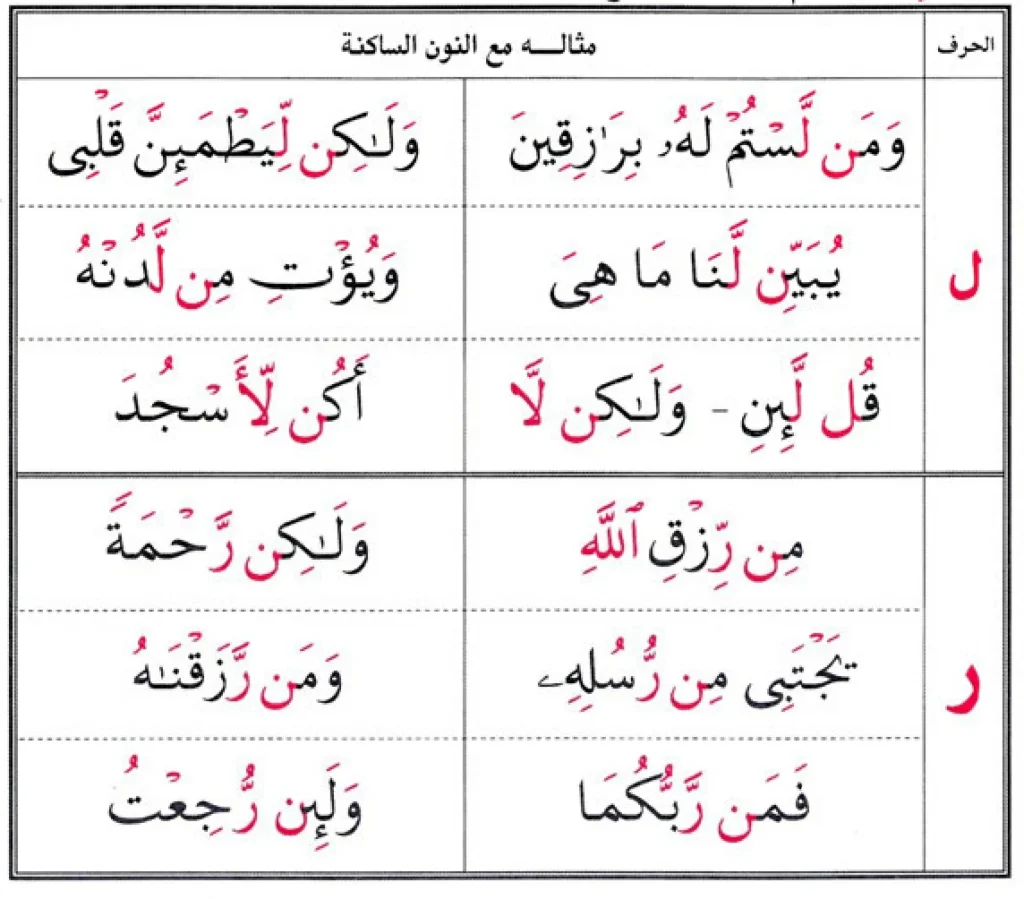 الحرف مثالــه مع النون الساكنة
وَمَن لَّسْتُمْ لَهُۥ بِرَٰزِقِينَ وَلَٰكِن لِّيَطْمَئِنَّ قَلْبِى
ل يُبَيِّن لَّنَا مَا هِىَ وَيُؤْتِ مِن لَّدُنْهُ
قُل لَّئِنِ - وَلَٰكِن لَّا أَكُن لِّأَسْجُدَ
مِن رِّزْقِ ٱللَّهِ وَلَٰكِن رَّحْمَةً
ر يَجْتَبِى مِن رُّسُلِهِۦ وَمَن رَّزَقْنَٰهُ
فَمَن رَّبُّكُمَا وَلَئِن رُّجِعْتُ